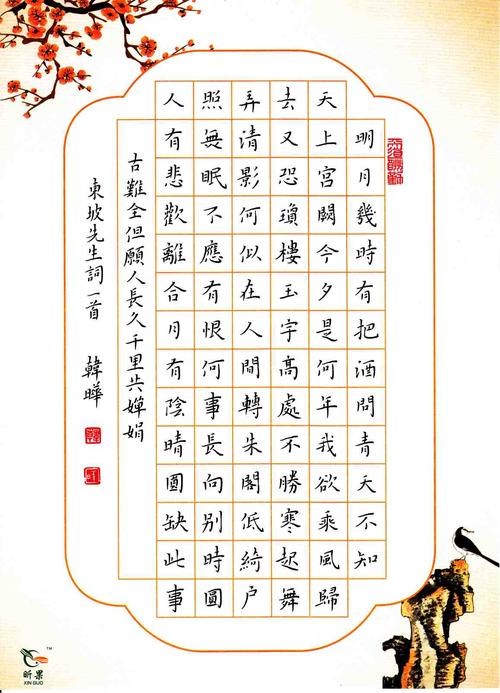 明月幾時有把酒問青天不知
天上宮闕今夕是何年我欲乘風歸
去又恐瓊樓玉宇高處不勝寒起舞
弄清影何似在人間轉朱閣低綺戶
照無眠不應有恨何事長向別時圓
人有悲歡離合月有陰晴圓缺此事
古難全但願人長久千里共嬋娟
東坡先生詞一首 韓曄
昕果
XIN GUO
TM